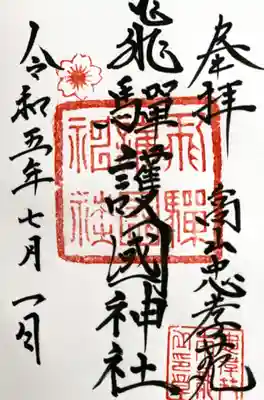 奉拝 山忠孝苑
飛驒護國神社
令和五年七月一日
飛驒
護國
神社